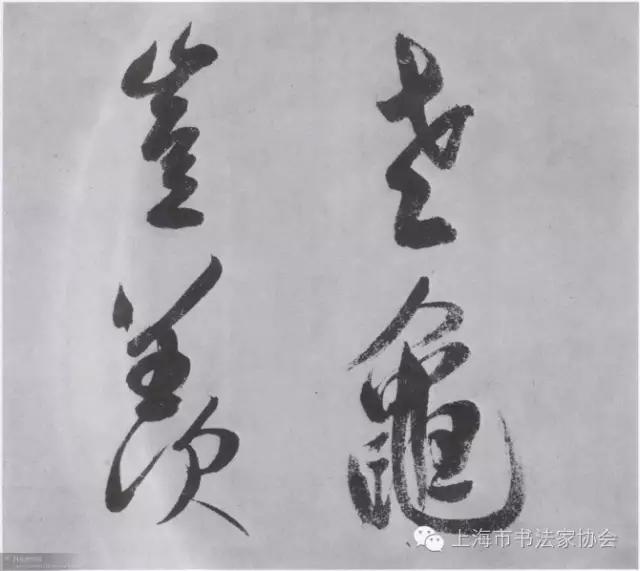 老龜
豈羨
上海市书法家协会